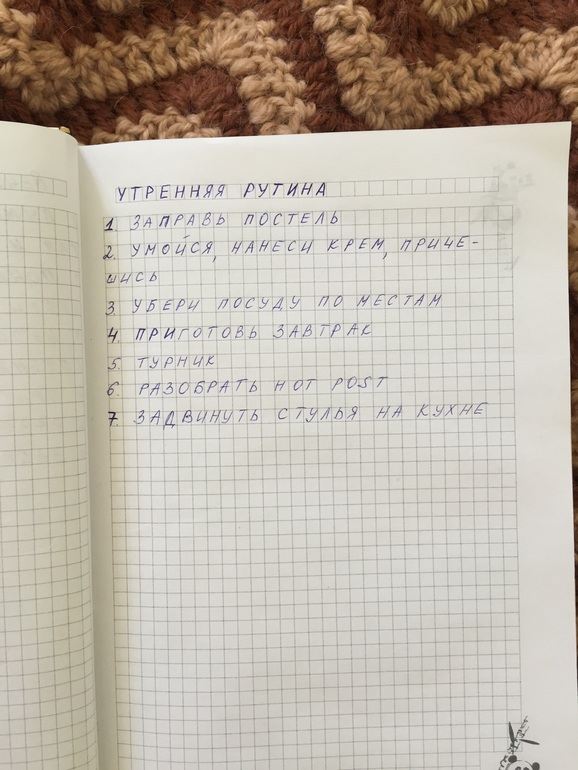 УТРЕННЯЯ РУТИНА
1. ЗАПРАВЬ ПОСТЕЛЬ
2. УМОЙСЯ, НАНЕСИ КРЕМ, ПРИЧЕ-
ШИСЬ
3. УБЕРИ ПОСУДУ ПО МЕСТАМ
4. ПРИГОТОВЬ ЗАВТРАК
5. ТУРНИК
6. РАЗОБРАТЬ HOT POST
7. ЗАДВИНУТЬ СТУЛЬЯ НА КУХНЕ